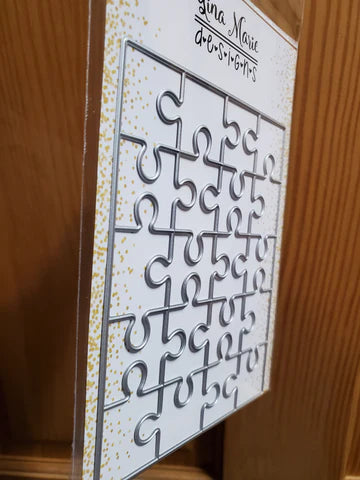 Gina Marie
d•e•s•i•g•n•s